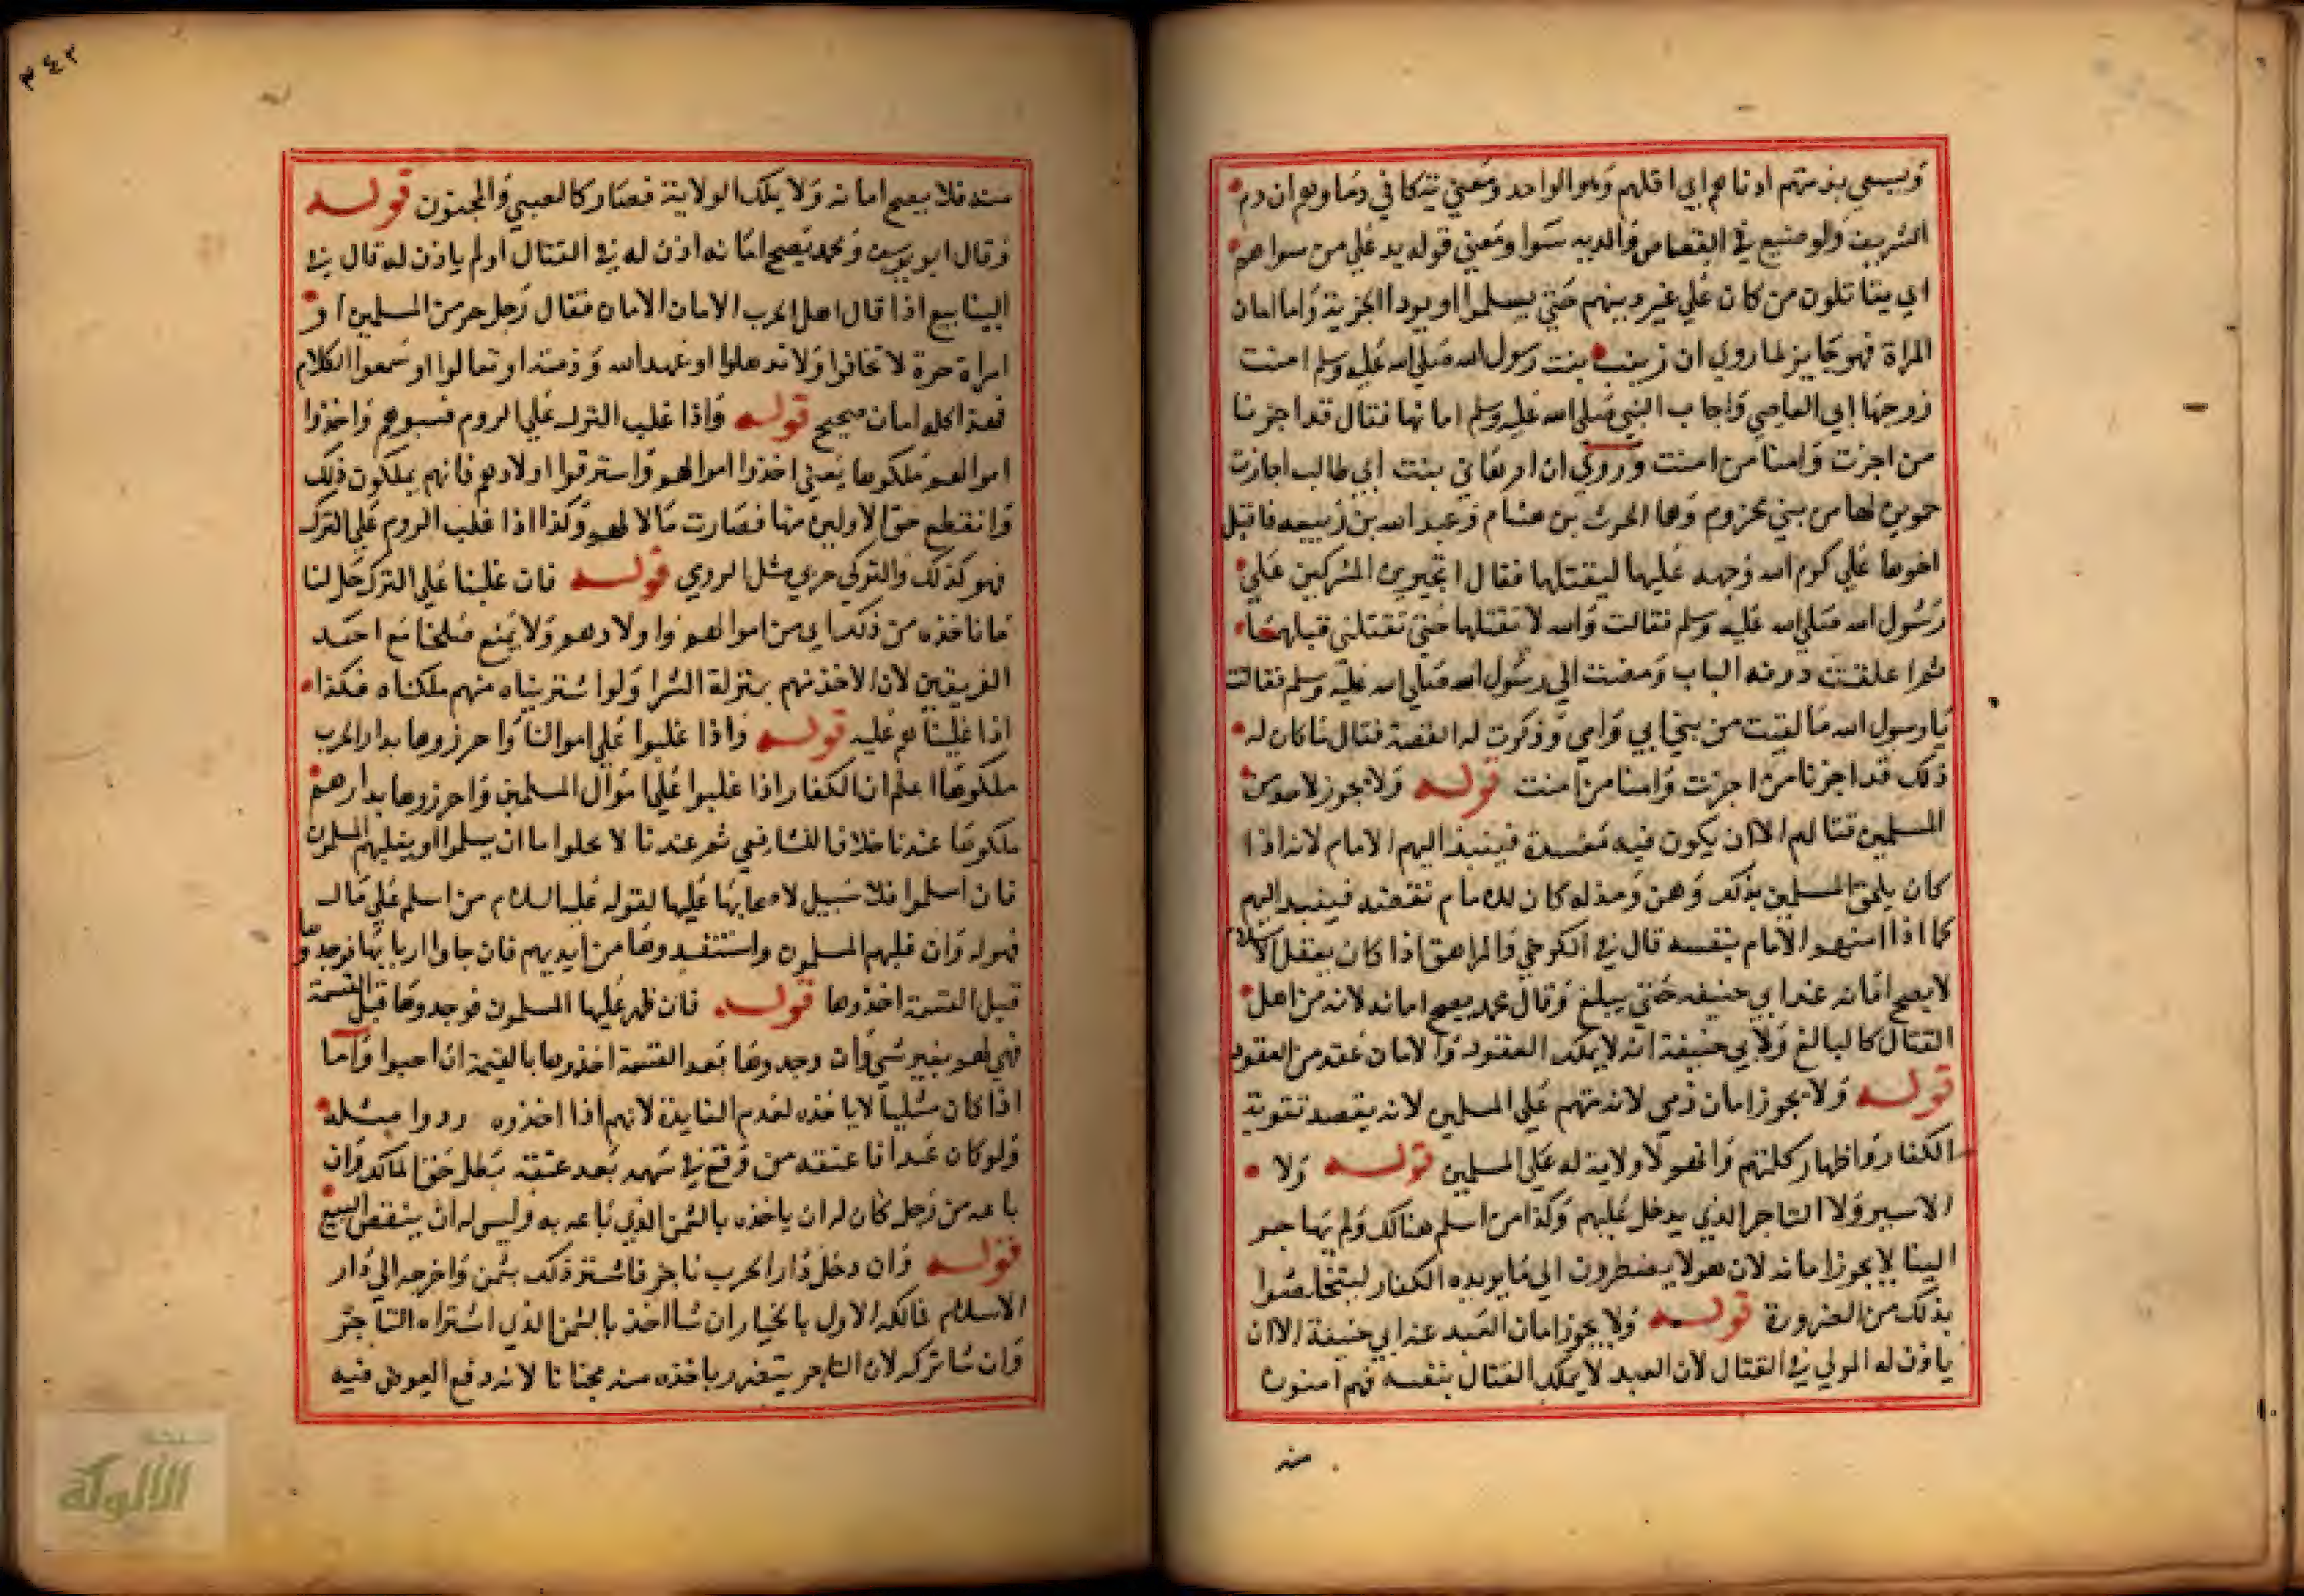 ويسعي بذمتهم ادناهم اي اقلهم وهو الواحد ومعني تتكافي دماوهم ان دم
الشريف والوضيع في القصاص والديه سوا ومعني قوله يد علي من سواهم
اي يقاتلون من كان علي غير دينهم حتي يسلموا او يودوا الجزية واما امان
المراة فهو جايز لما روي ان زينب بنت رسول الله صلي الله عليه وسلم امنت
زوجها ابي العاصي واجاب النبي صلي الله عليه وسلم امانها فقال قد اجزنا
من اجزت وامنا من امنت وروي ان ام هاني بنت ابي طالب اجازت
حموين لها من بني مخزوم وهما الحرث بن هشام وعبد الله بن ربيعه فاقبل
اخوها علي كرم الله وجهه عليها ليقتلها فقال اتجيرين المشركين علي
رسول الله صلي الله عليه وسلم فقالت والله لا تقتلهما حتي تقتلني قبلهما
ثم اغلقت دونه الباب ومضت الي رسول الله صلي الله عليه وسلم فقالت
يا رسول الله ما لقيت من بني ابي وامي وذكرت له القصة فقال ما كان له
ذلك قد اجزنا من اجزت وامنا من امنت قوله ولا يجوز لاحد من
المسلمين قتالهم الا ان يكون فيه مفسدة فينبذ اليهم الامام لانه اذا
كان يلحق المسلمين بذلك وهن ومذله كان للامام نقضه فينبذ اليهم
كما اذا امنهم الامام بنفسه قال في الكرخي والمراهق اذا كان يعقل الاسلام
لا يصح امانه عند ابي حنيفه حتي يبلغ وقال محمد يصح امانه لانه من اهل
القتال كالبالغ ولابي حنيفة انه لا يملك العقود والامان عقد من العقود
قوله ولا يجوز امان ذمي لانه متهم علي المسلمين لانه يقصد تقوية
الكفار واظهار كلمتهم وانهم لا ولاية له علي المسلمين قوله ولا
الاسير ولا التاجر الذي يدخل عليهم وكذا من اسلم هنالك ولم يهاجر
الينا لا يجوز امانه لان هولا يضطرون الي ما يريده الكفار ليتخلصوا
بذلك من الضرورة قوله ولا يجوز امان العبد عند ابي حنيفة الا ان
ياذن له المولي في القتال لان العبد لا يملك القتال بنفسه فهم امنون
منه
٣٤٢
منه فلا يصح امانه ولا يملك الولاية فصار كالصبي والمجنون قوله
وقال ابو يوسف ومحمد يصح امانه اذن له في القتال او لم ياذن له قال في
الينابيع اذا قال اهل الحرب الامان الامان فقال رجل حر من المسلمين او
امراة حرة لا تخافوا ولا تدهلوا او عهد الله وذمته او تعالوا او سمعوا الكلام
فهذا كله امان صحيح قوله واذا غلب الترك علي الروم فسبوهم واخذوا
اموالهم ملكوها يعني اخذوا اموالهم واسترقوا اولادهم فانهم يملكون ذلك
وانقطع حق الاولين منها فصارت مالا لهم وكذا اذا غلب الروم علي الترك
فهو كذلك والتركي حربي مثل الرومي قوله فان غلبنا علي الترك حل لنا
ما ناخذه من ذلك اي من اموالهم واولادهم ولا يمنع صلحنا مع احد
الفريقين لان الاخذ منهم بمنزلة الشرا ولو اشتريناه منهم ملكناه فكذا
اذا غلبناهم عليه قوله واذا غلبوا علي اموالنا واحرزوها بدار الحرب
ملكوها اعلم ان الكفار اذا غلبوا علي اموال المسلمين واحرزوها بدارهم
ملكوها عندنا خلافا للشافعي ثم عندنا لا يخلوا اما ان يسلموا او يغلبهم المسلمون
فان اسلموا فلا سبيل لاصحابها عليها لقوله عليه السلام من اسلم علي مال
فهو له وان غلبهم المسلمون واستنقذوها من ايديهم فان جاوا اربابها فوجدوها
قبل القسمة اخذوها قوله فان ظهر عليها المسلمون فوجدوها قبل القسمة
فهي لهم بغير شي وان وجدوها بعد القسمة اخذوها بالقيمة ان احبوا واما
اذا كان مثليا لا ياخذه لعدم الفايدة لانهم اذا اخذوه ردوا مثله
ولو كان عبدا فاعتقه من وقع في سهمه بعد عتقه بطل حق المالك وان
باعه من رجل كان له ان ياخذه بالثمن الذي باعه به وليس له ان ينقض البيع
قوله وان دخل دار الحرب تاجر فاشتر ذلك بثمن واخرجه الي دار
الاسلام فمالكه الاول بالخيار ان شا اخذ بالثمن الذي اشتراه التاجر
وان شا تركه لان التاجر يتضرر باخذه منه مجانا لانه دفع العوض فيه
الألوكة